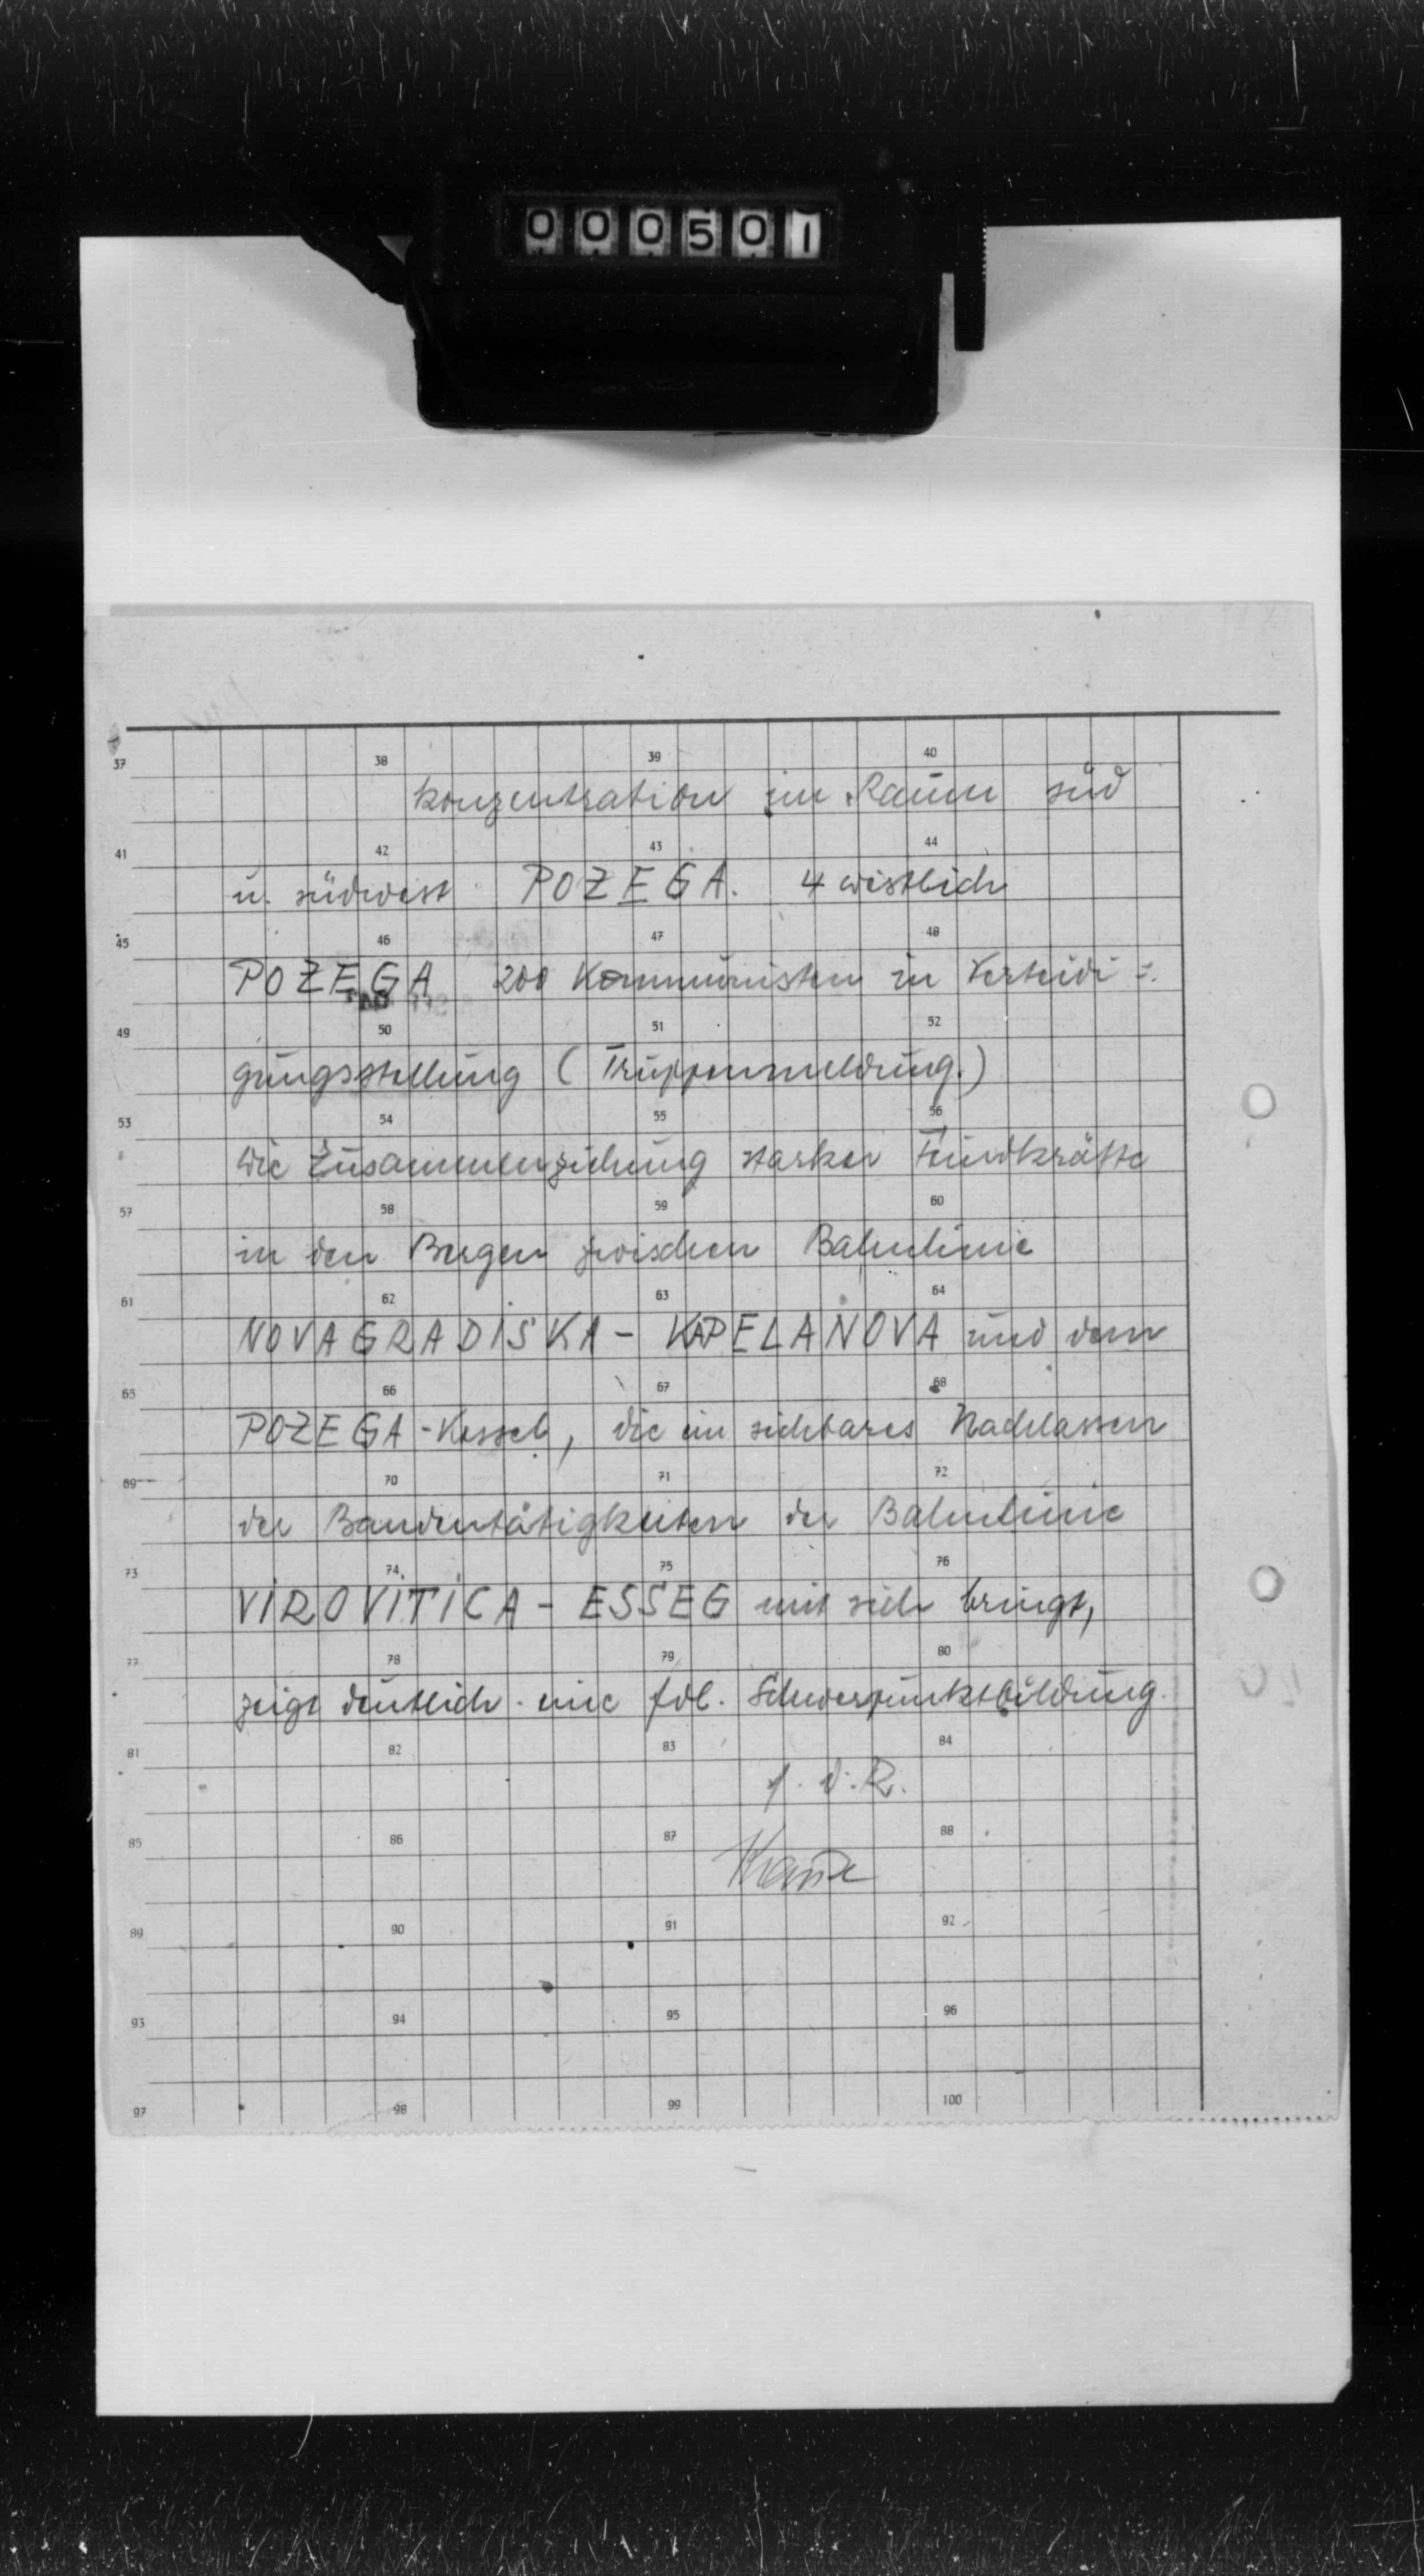 000501
37 38 39 40
konzentration im Raum süd
41 42 43 44
u. südwest POZEGA. 4 westlich
45 46 47 48
POZEGA 200 Kommunisten in Verteidi =
49 50 51 52
gungsstellung (Truppenmeldung.)
53 54 55 56
Die Zusammenziehung starker Feindkräfte
57 58 59 60
in den Bergen zwischen Bahnlinie
61 62 63 64
NOVAGRADISKA - KAPELANOVA und dem
65 66 67 68
POZEGA-Kessel, die ein sichtbares Nachlassen
69 70 71 72
der Bandentätigkeiten der Bahnlinie
73 74 75 76
VIROVITICA - ESSEG mit sich bringt,
77 78 79 80
zeigt deutlich eine fdl. Schwerpunktbildung.
81 82 83 84
f. d. R.
85 86 87 88
89 90 91 92
93 94 95 96
97 98 99 100